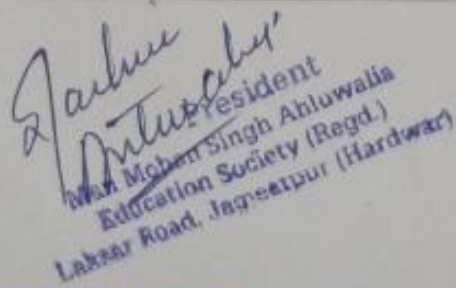 President
Man Mohan Singh Ahluwalia
Education Society (Regd.)
Laksar Road, Jagjeetpur (Hardwar)